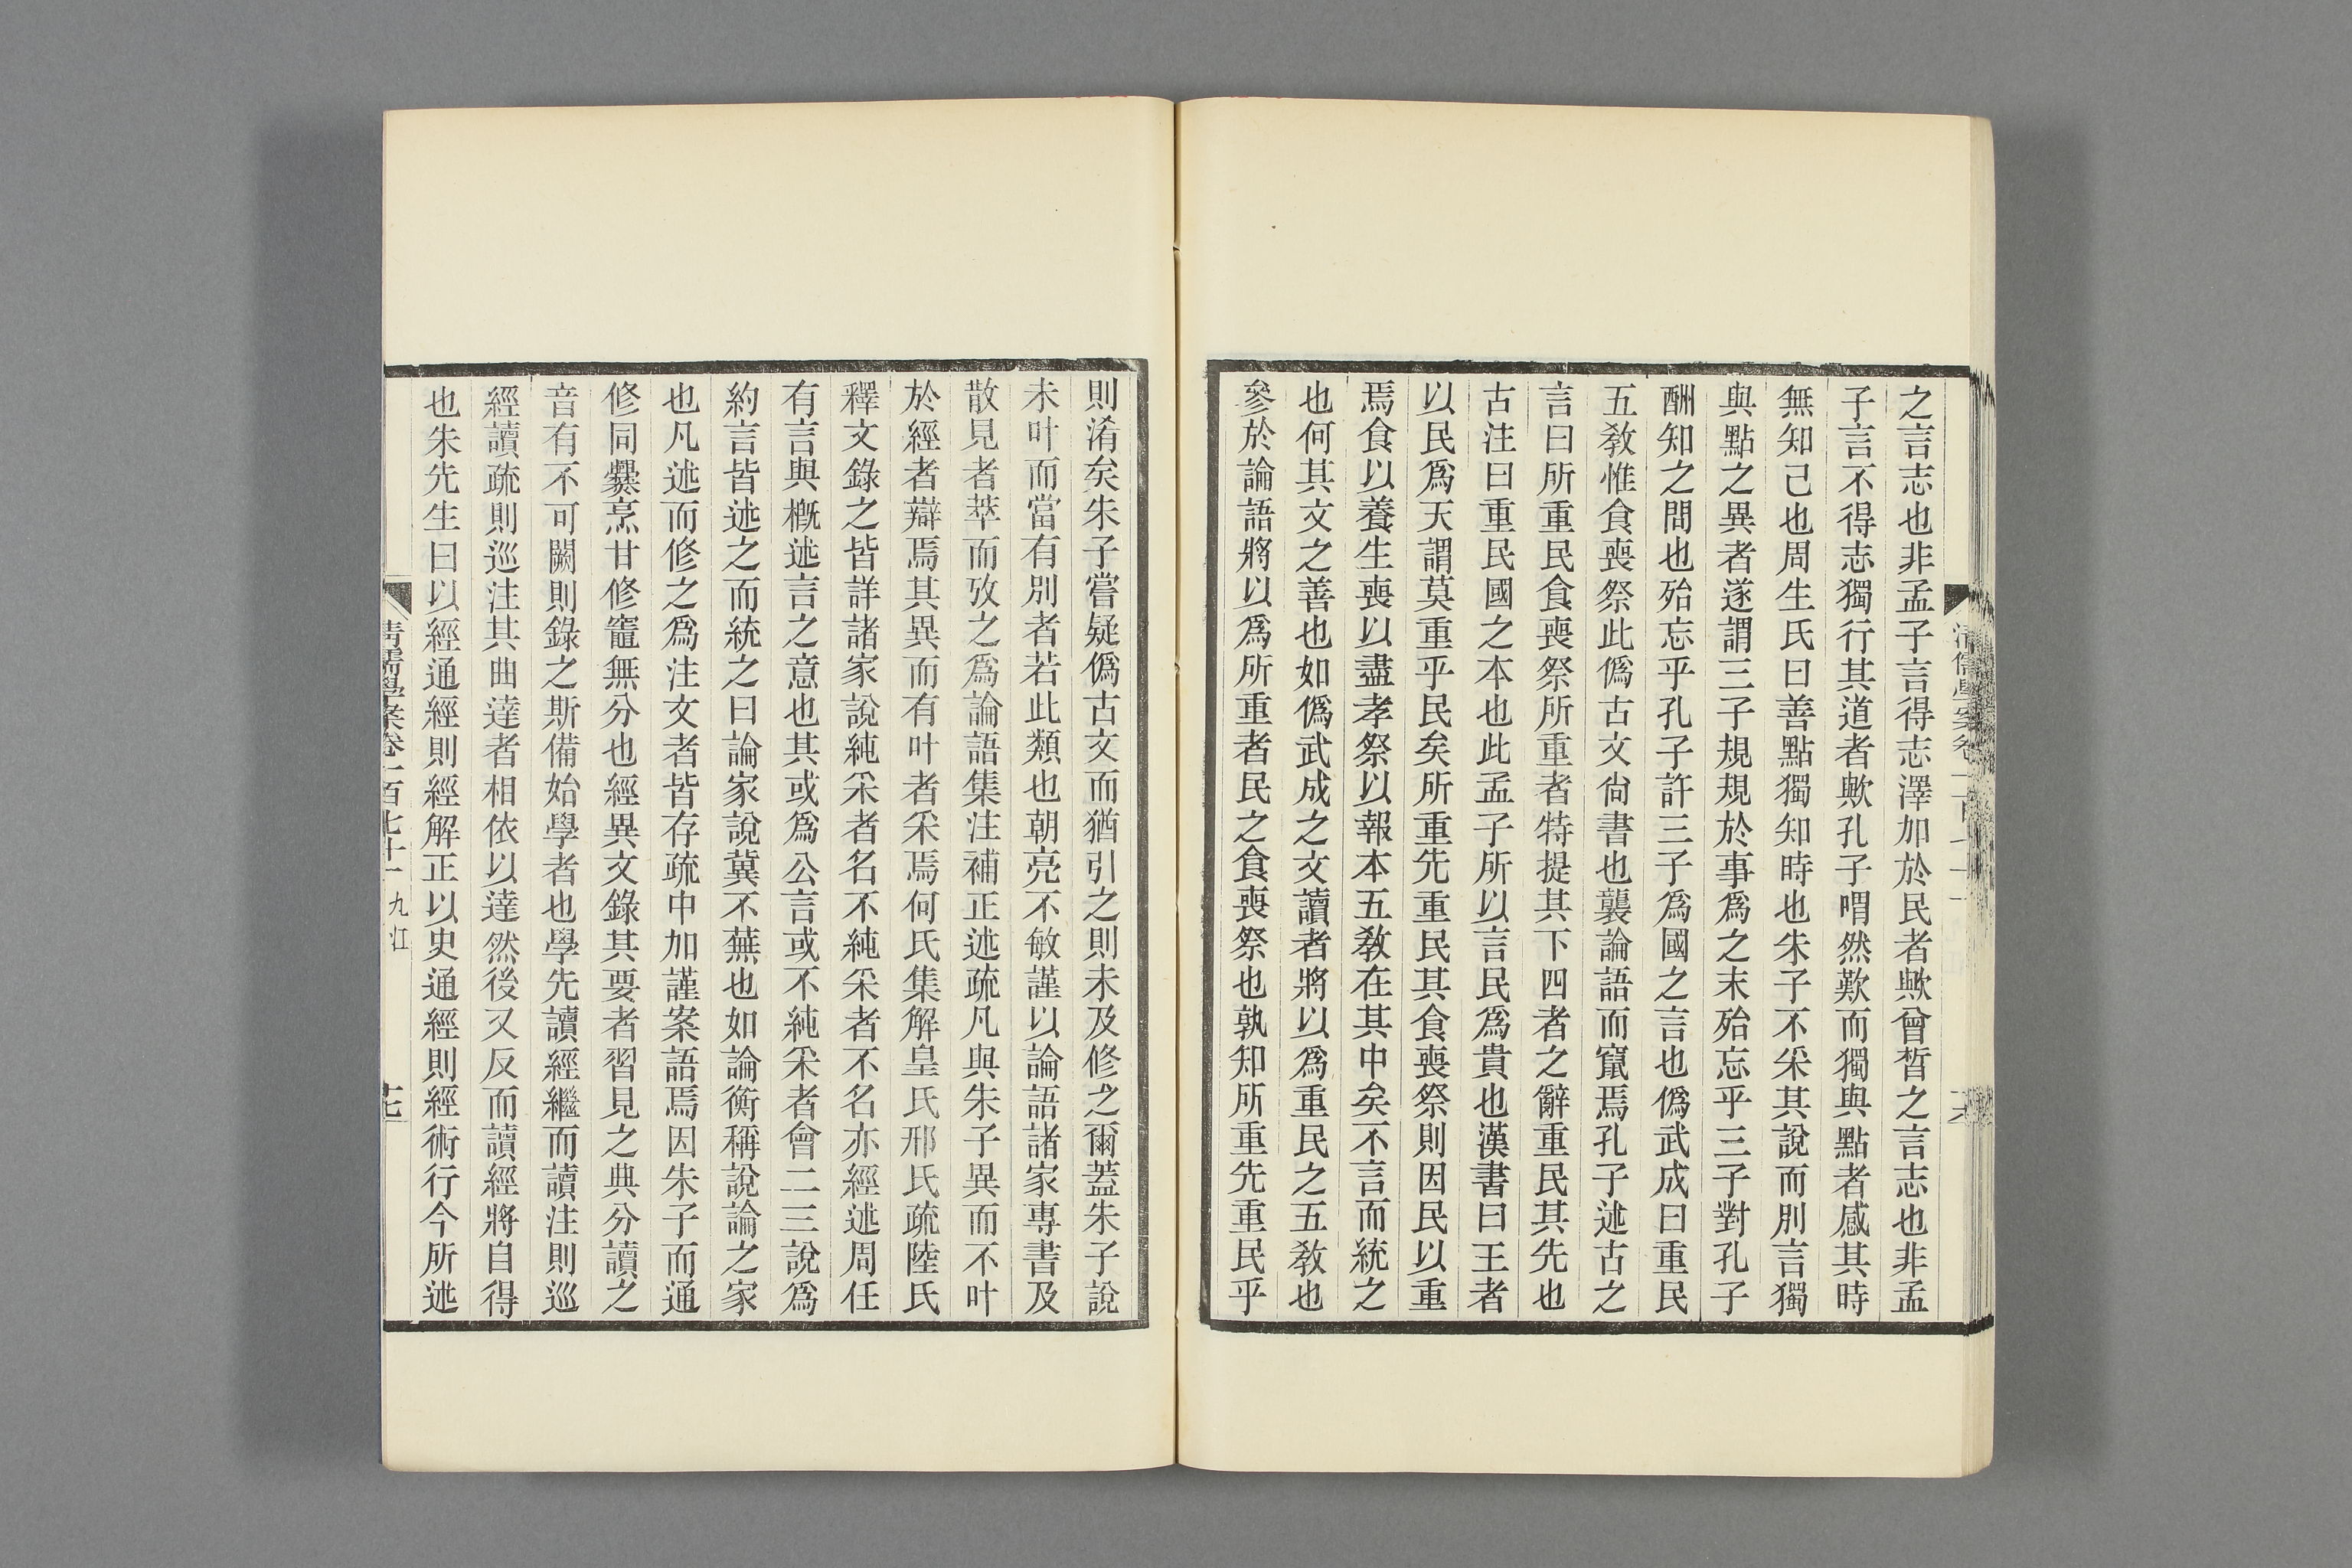 之言志也非孟子言得志澤加於民者歟曾晳之言志也非孟
子言不得志獨行其道者歟孔子喟然歎而獨與點者感其時
無知己也周生氏曰善點獨知時也朱子不采其說而別言獨
與點之異者遂謂三子規規於事爲之末殆忘乎三子對孔子
酬知之問也殆忘乎孔子許三子爲國之言也僞武成曰重民
五敎惟食喪祭此僞古文尙書也襲論語而竄焉孔子述古之
言曰所重民食喪祭所重者特提其下四者之辭重民其先也
古注曰重民國之本也此孟子所以言民爲貴也漢書曰王者
以民爲天謂莫重乎民矣所重先重民其食喪祭則因民以重
焉食以養生喪以盡孝祭以報本五敎在其中矣不言而統之
也何其文之善也如僞武成之文讀者將以爲重民之五敎也
參於論語將以爲所重者民之食喪祭也孰知所重先重民乎
則淆矣朱子嘗疑僞古文而猶引之則未及修之爾蓋朱子說
未叶而當有別者若此類也朝亮不敏謹以論語諸家專書及
散見者萃而攷之爲論語集注補正述疏凡與朱子異而不叶
於經者辯焉其異而有叶者采焉何氏集解皇氏邢氏疏陸氏
釋文錄之皆詳諸家說純采者名不純采者不名亦經述周任
有言與槪述言之意也其或爲公言或不純采者會二三說爲
約言皆述之而統之曰論家說冀不蕪也如論衡稱說論之家
也凡述而修之爲注文者皆存疏中加謹案語焉因朱子而通
修同爨烹甘修竈無分也經異文錄其要者習見之典分讀之
音有不可闕則錄之斯備始學者也學先讀經繼而讀注則巡
經讀疏則巡注其曲達者相依以達然後又反而讀經將自得
也朱先生曰以經通經則經解正以史通經則經術行今所述
清儒學案卷一百七十一 九江
十七